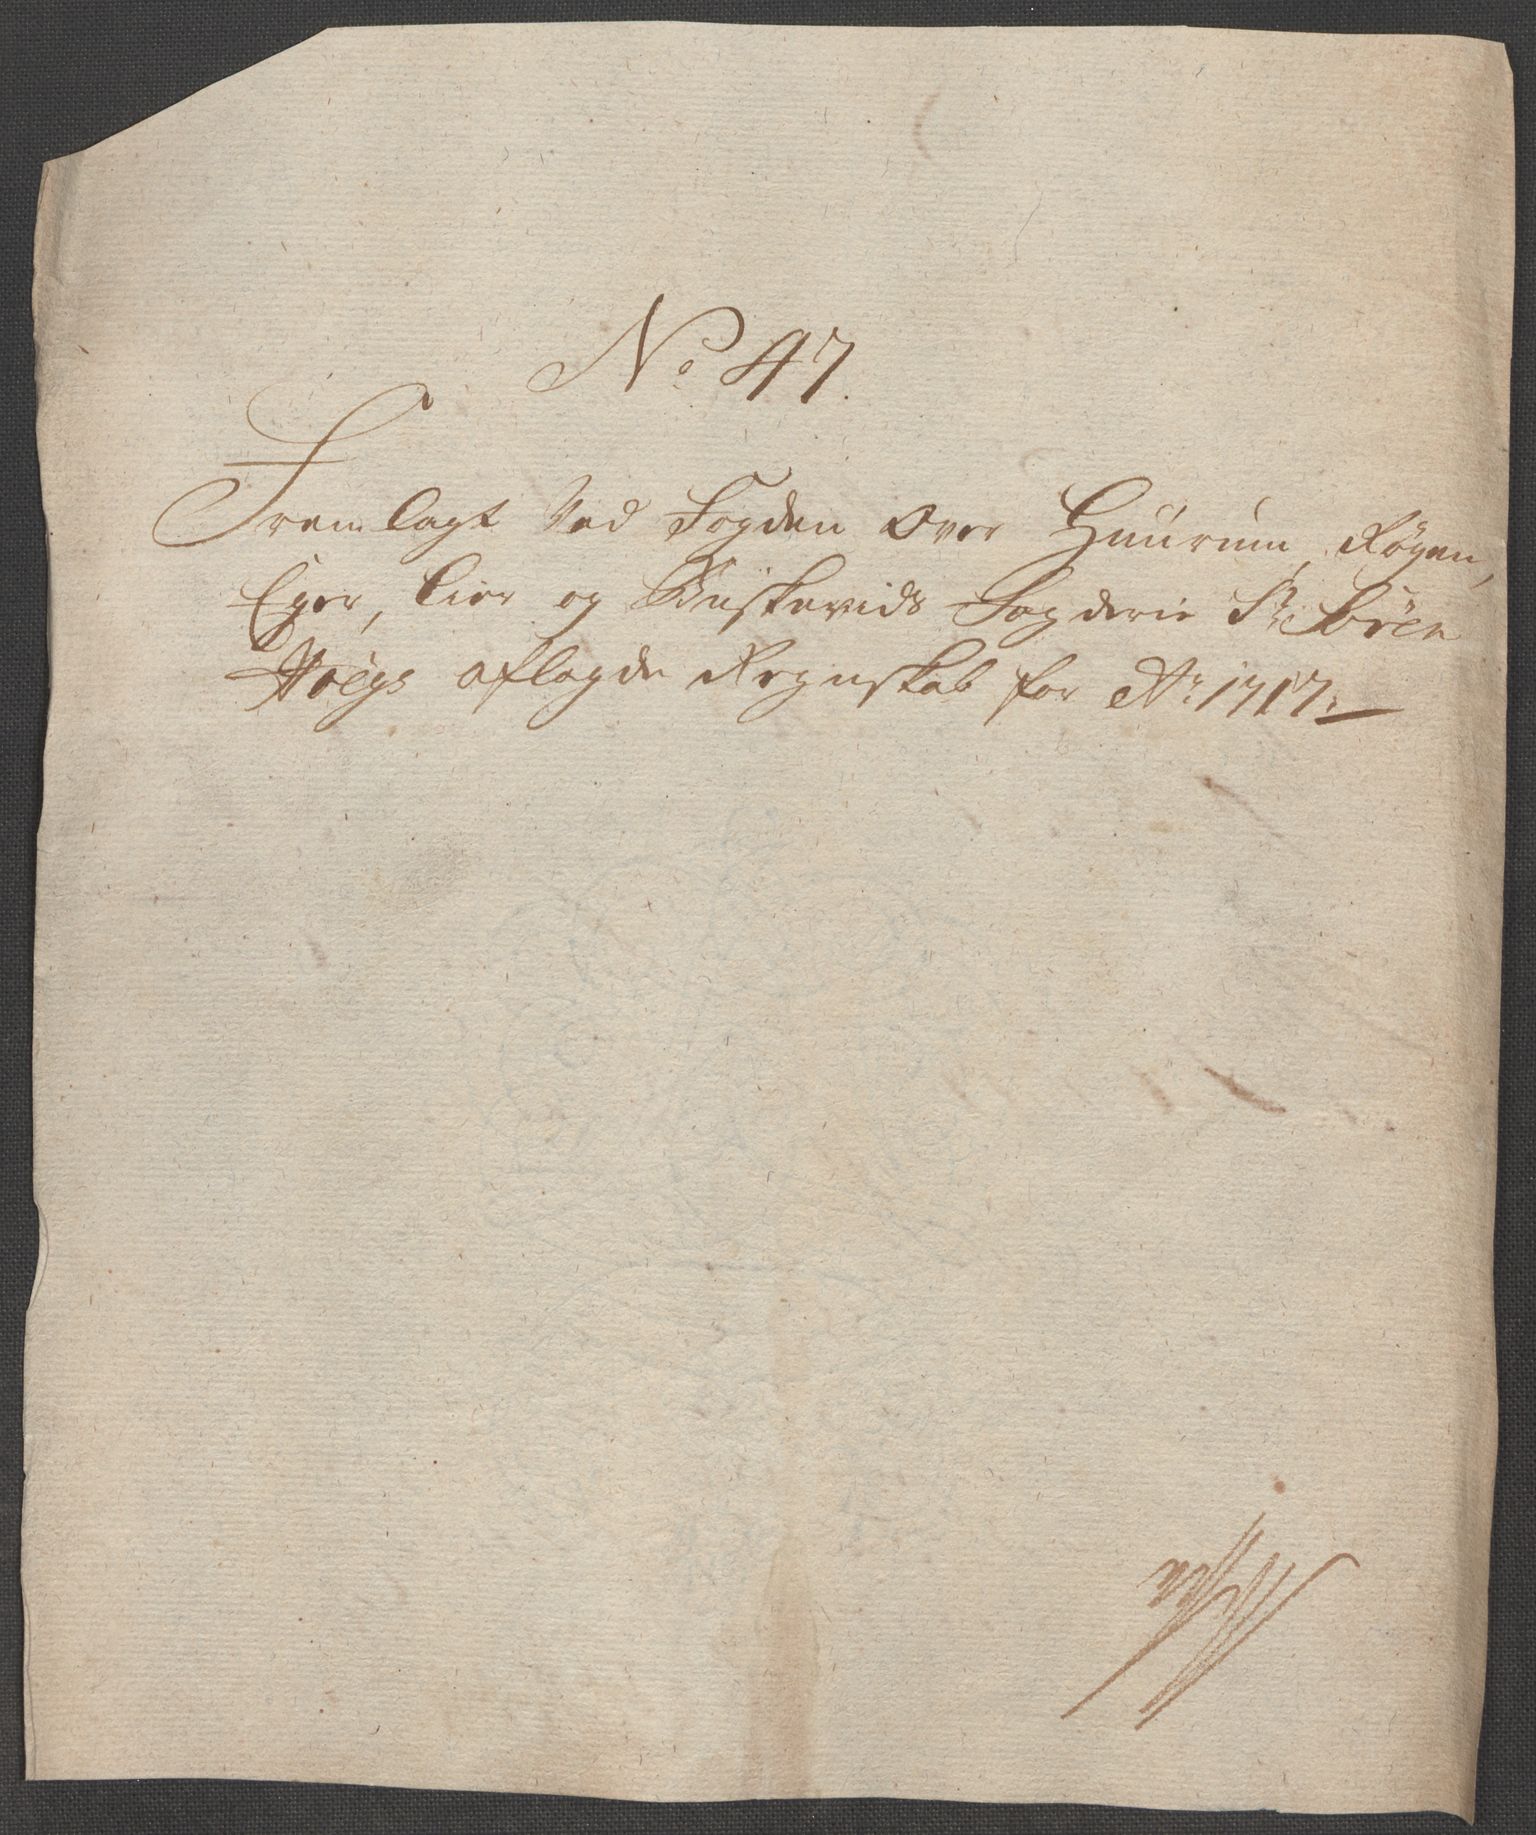 No 47.
Fremlagt Ved Fogden Over Huurum, Røgen,
Eger, Lier og Buskeruds Fogderie Sr. Sören
Hoegs aflagde Regnskab for Ao. 1717.